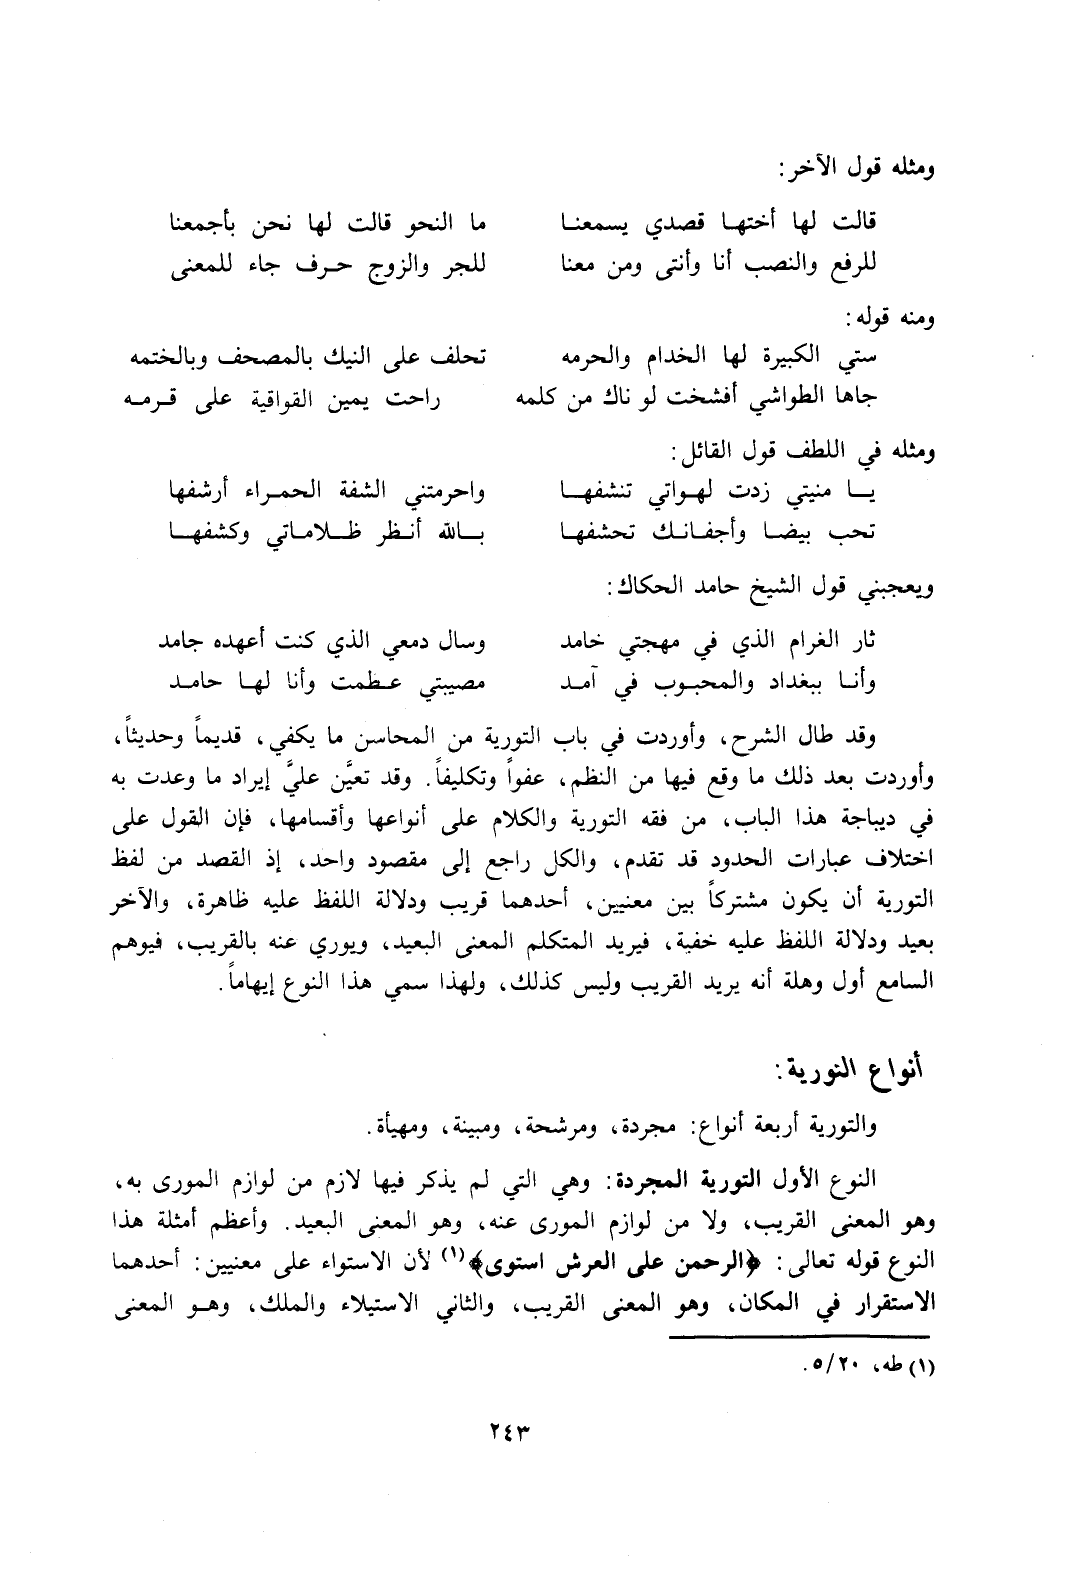 ومثله قول الآخر:
قالت لها أختها قصدي يسمعنا ما النحو قالت لها نحن بأجمعنا
للرفع والنصب أنا وأنتى ومن معنا للجر والزوج حرف جاء للمعنى
ومنه قوله:
ستي الكبيرة لها الخدام والحرمه تحلف على النيك بالمصحف وبالختمه
جاها الطواشي أفشخت لو ناك من كلمه راحت يمين القواقية على قرمه
ومثله في اللطف قول القائل:
يا منيتي زدت لهواتي تنشفها واحرمتني الشفة الحمراء أرشفها
تحب بيضا وأجفانك تحشفها بالله أنظر ظلاماتي وكشفها
ويعجبني قول الشيخ حامد الحكاك:
ثار الغرام الذي في مهجتي خامد وسال دمعي الذي كنت أعهده جامد
وأنا ببغداد والمحبوب في آمد مصيبتي عظمت وأنا لها حامد
وقد طال الشرح، وأوردت في باب التورية من المحاسن ما يكفي، قديماً وحديثاً،
وأوردت بعد ذلك ما وقع فيها من النظم، عفواً وتكليفاً. وقد تعيَّن عليَّ إيراد ما وعدت به
في ديباجة هذا الباب، من فقه التورية والكلام على أنواعها وأقسامها، فإن القول على
اختلاف عبارات الحدود قد تقدم، والكل راجع إلى مقصود واحد، إذ القصد من لفظ
التورية أن يكون مشتركاً بين معنيين، أحدهما قريب ودلالة اللفظ عليه ظاهرة، والآخر
بعيد ودلالة اللفظ عليه خفية، فيريد المتكلم المعنى البعيد، ويوري عنه بالقريب، فيوهم
السامع أول وهلة أنه يريد القريب وليس كذلك، ولهذا سمي هذا النوع إيهاماً.
أنواع التورية:
والتورية أربعة أنواع: مجردة، ومرشحة، ومبينة، ومهيأة.
النوع الأول التورية المجردة: وهي التي لم يذكر فيها لازم من لوازم المورى به،
وهو المعنى القريب، ولا من لوازم المورى عنه، وهو المعنى البعيد. وأعظم أمثلة هذا
النوع قوله تعالى: ﴿الرحمن على العرش استوى﴾(١) لأن الاستواء على معنيين: أحدهما
الاستقرار في المكان، وهو المعنى القريب، والثاني الاستيلاء والملك، وهو المعنى
(١) طه، ٥/٢٠.
٢٤٣